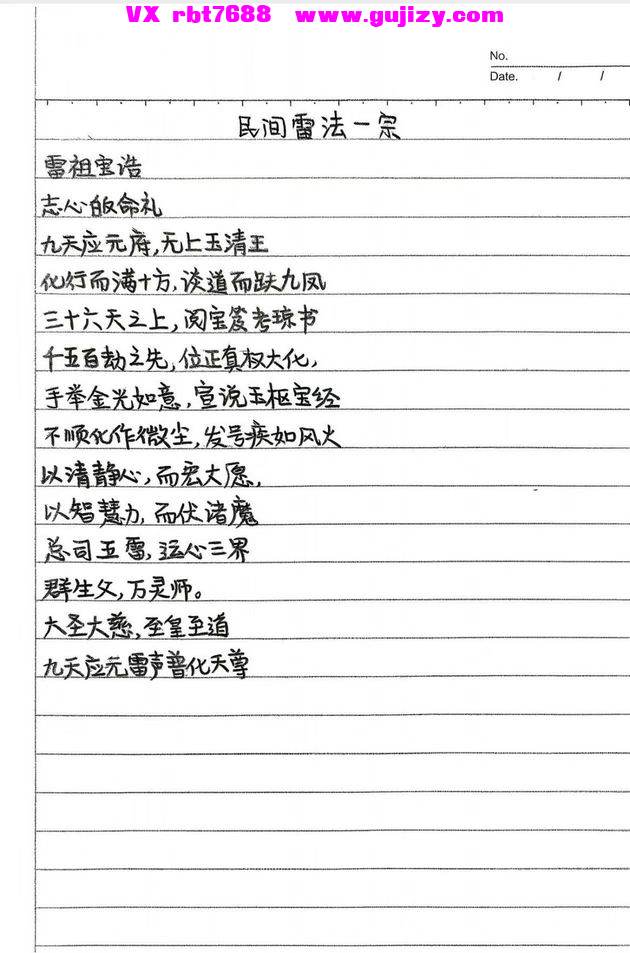 VX rbt7688 www.gujizy.com
No.
Date. / /
民间雷法一宗
雷祖宝浩
志心皈命礼
九天应元府,无上玉清王
化行而满十方,谈道而趺九凤
三十六天之上,阅宝笈考琼书
千五百劫之先,位正真权大化,
手举金光如意,宣说玉枢宝经
不顺化作微尘,发号疾如风火
以清静心,而宏大愿,
以智慧力,而伏诸魔
总司五雷,运心三界
群生父,万灵师。
大圣大慈,至皇至道
九天应元雷声普化天尊